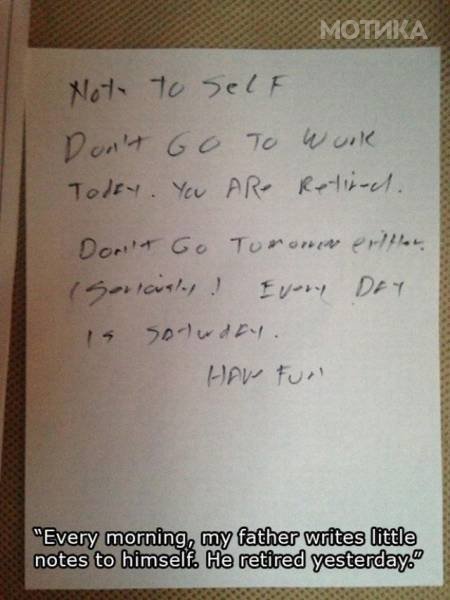 МОТИКА
Note To Self
Don't Go To Work
Today. You Are Retired.
Don't Go Tomorrow either.
(Seriously! Every Day
is Saturday.
Have Fun
"Every morning, my father writes little
notes to himself. He retired yesterday."